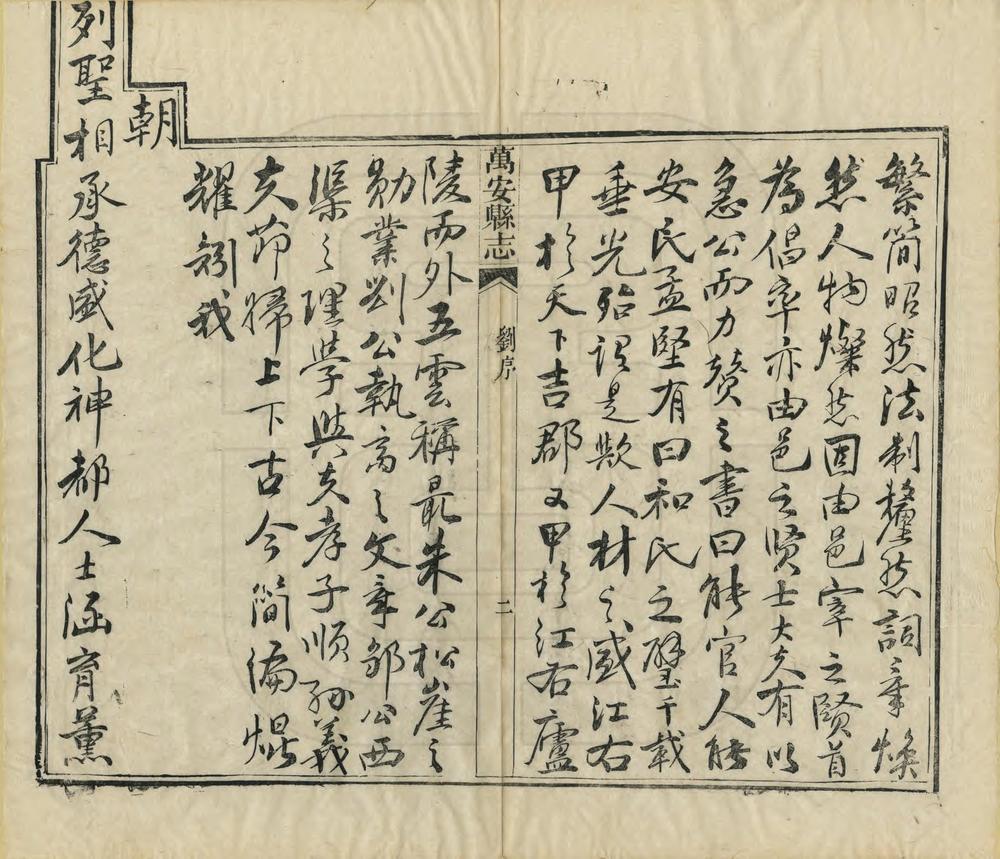 繁簡昭然法制釐然詞章煥
然人物燦然固由邑宰之賢首
為倡率亦由邑之賢士大夫有以
急公而力贊之書曰能官人能
安民孟堅有曰和氏之璧千載
垂光殆謂是歟人材之盛江右
甲於天下吉郡又甲於江右廬
萬安縣志
劉序
二
陵而外五雲稱最朱公松崖之
勛業劉公執齋之文章郭公西
渠之理學與夫孝子順孫義
夫節婦上下古今簡編焜
耀矧我
朝
列聖相承德盛化神都人士涵育薰